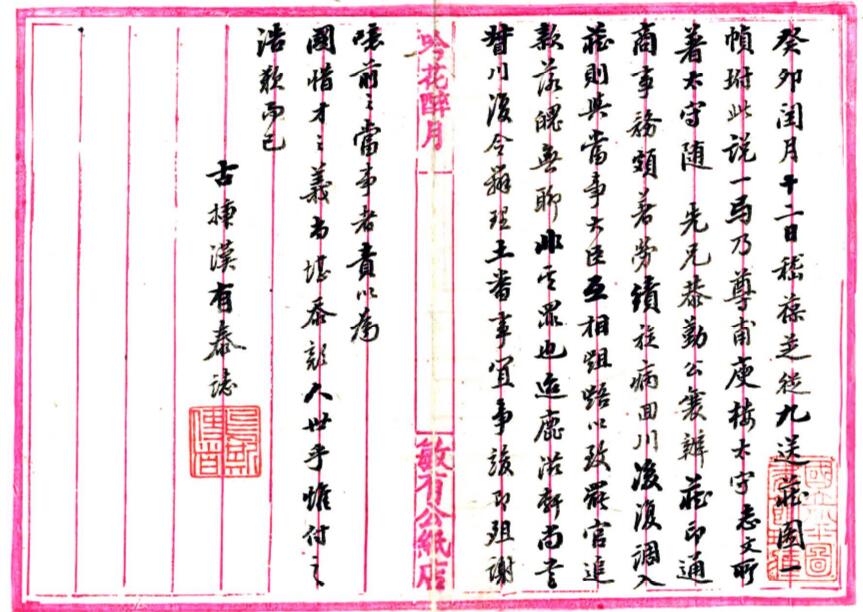 癸卯閏月十二日嵇葆芝從九送藏圖一
幀附此說一乃尊甫庾樓太守志文所
著太守隨 先兄恭勤公襄辦藏印通
商事務頗著勞績旋病回川後復調入
藏則與當事大臣互相齟齬以致罷官追
款落魄無聊非其罪也迨鹿滋軒尚書
督川復令辦理土番事宜事竣即殂謝
吟花醉月
敏有公紙店
噫前之當事者責以為
國惜才之義尚堪忝顏人世乎惟付之
浩歎而已
古摶漢有泰誌